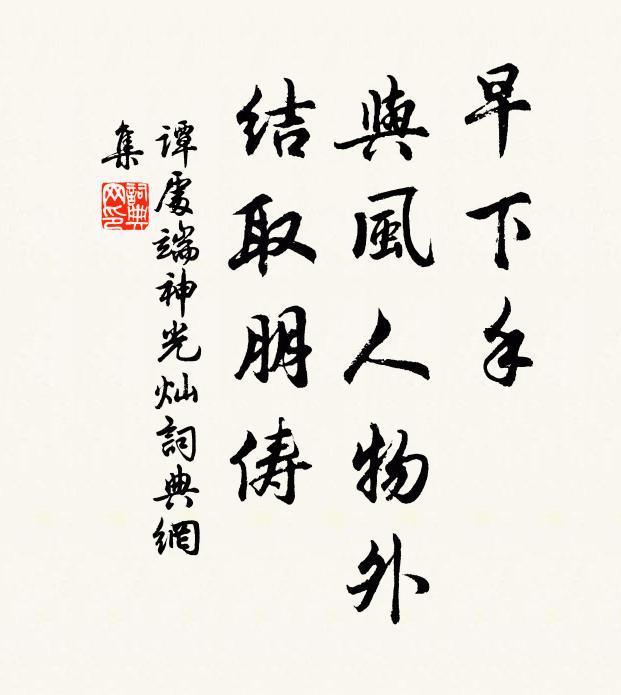 早下手
與風人物外
結取朋儔
譚處端神光灿詞典網
集
詞典网印